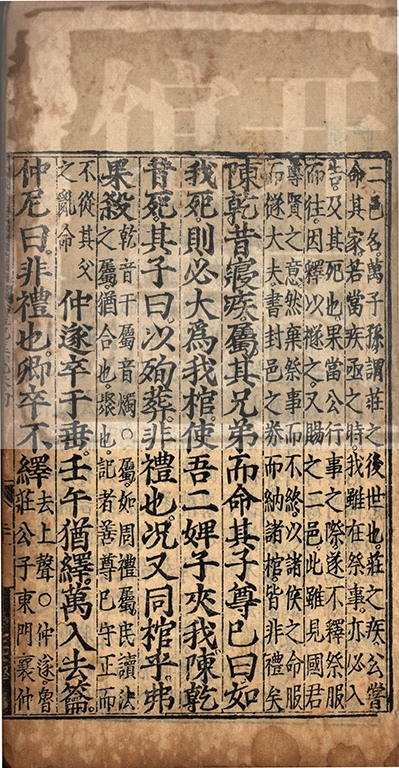 二邑名。萬子孫。謂莊之後世也。莊之疾。公嘗
命其家。若當疾亟之時。我雖在祭事。亦必入
告。及其死也。果當公行事之際。遂不釋祭服
而往。因釋以襚之。又賜之二邑。此雖見國君
尊賢之意。然棄祭事而不終。以諸侯之命服
而襚大夫。書封邑之券而納諸棺。皆非禮矣
陳乾昔寢疾。屬其兄弟。而命其子尊已曰。如
我死。則必大爲我棺。使吾二婢子夾我。陳乾
昔死。其子曰。以殉葬。非禮也。况又同棺乎。弗
果殺
乾音干。屬音燭。○屬。如周禮屬民讀法
之屬。猶合也。聚也。記者善尊已守正而
不從其父
之亂命
仲遂卒于垂。壬午猶繹。萬入去籥。
仲尼曰。非禮也。卿卒不繹
去上聲。○仲遂。魯
莊公子東門襄仲